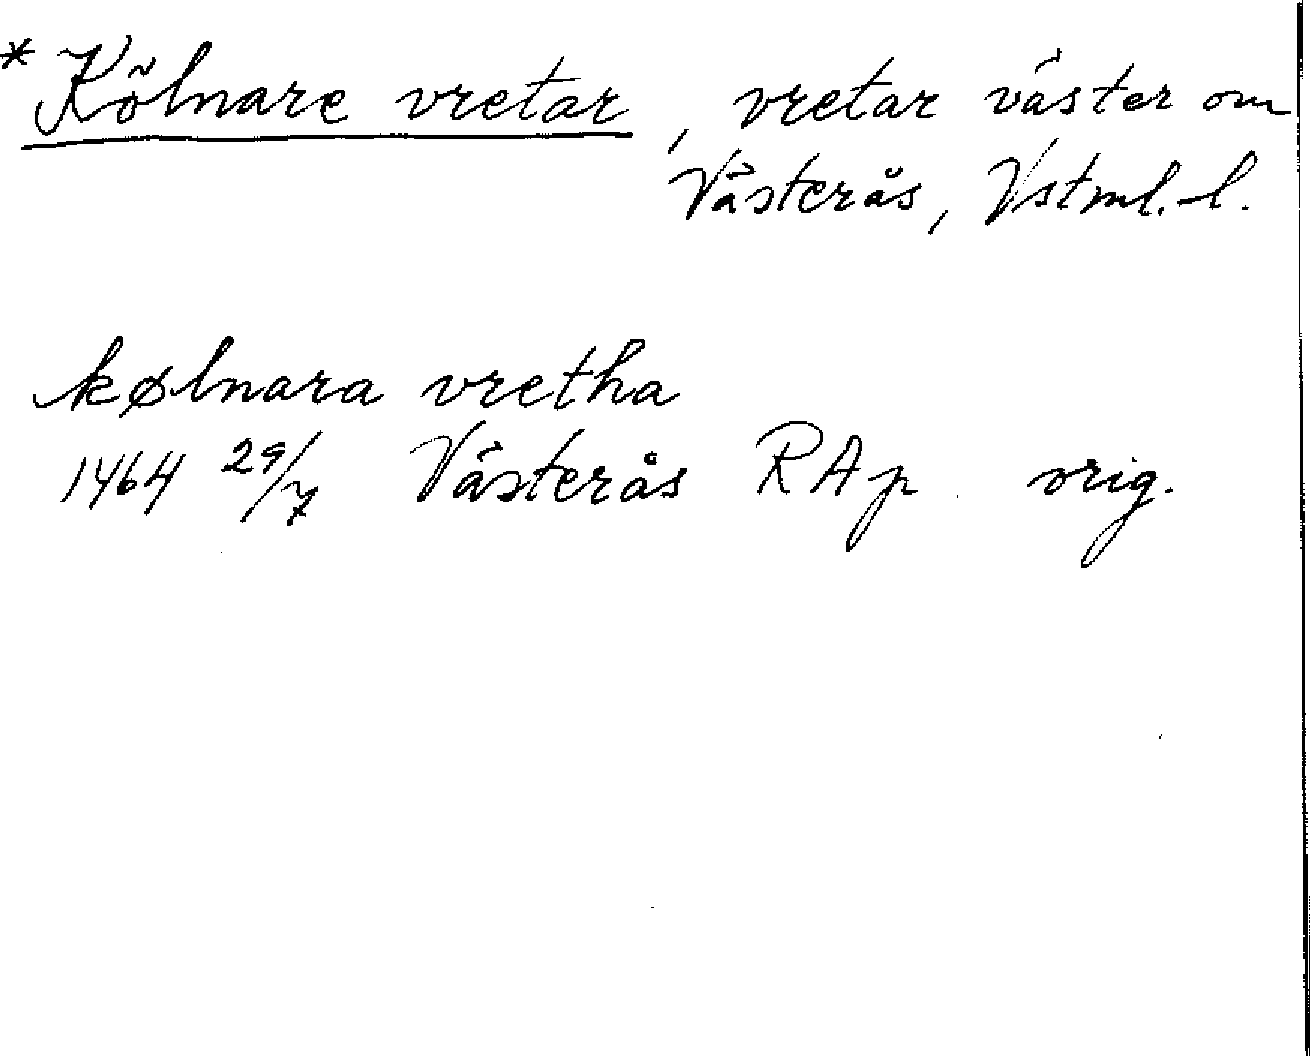 * Kölnare vretar, vretar väster om
Västerås, Vstml. l.
kølnara vretha
1464 29/7 Västerås RAp orig.